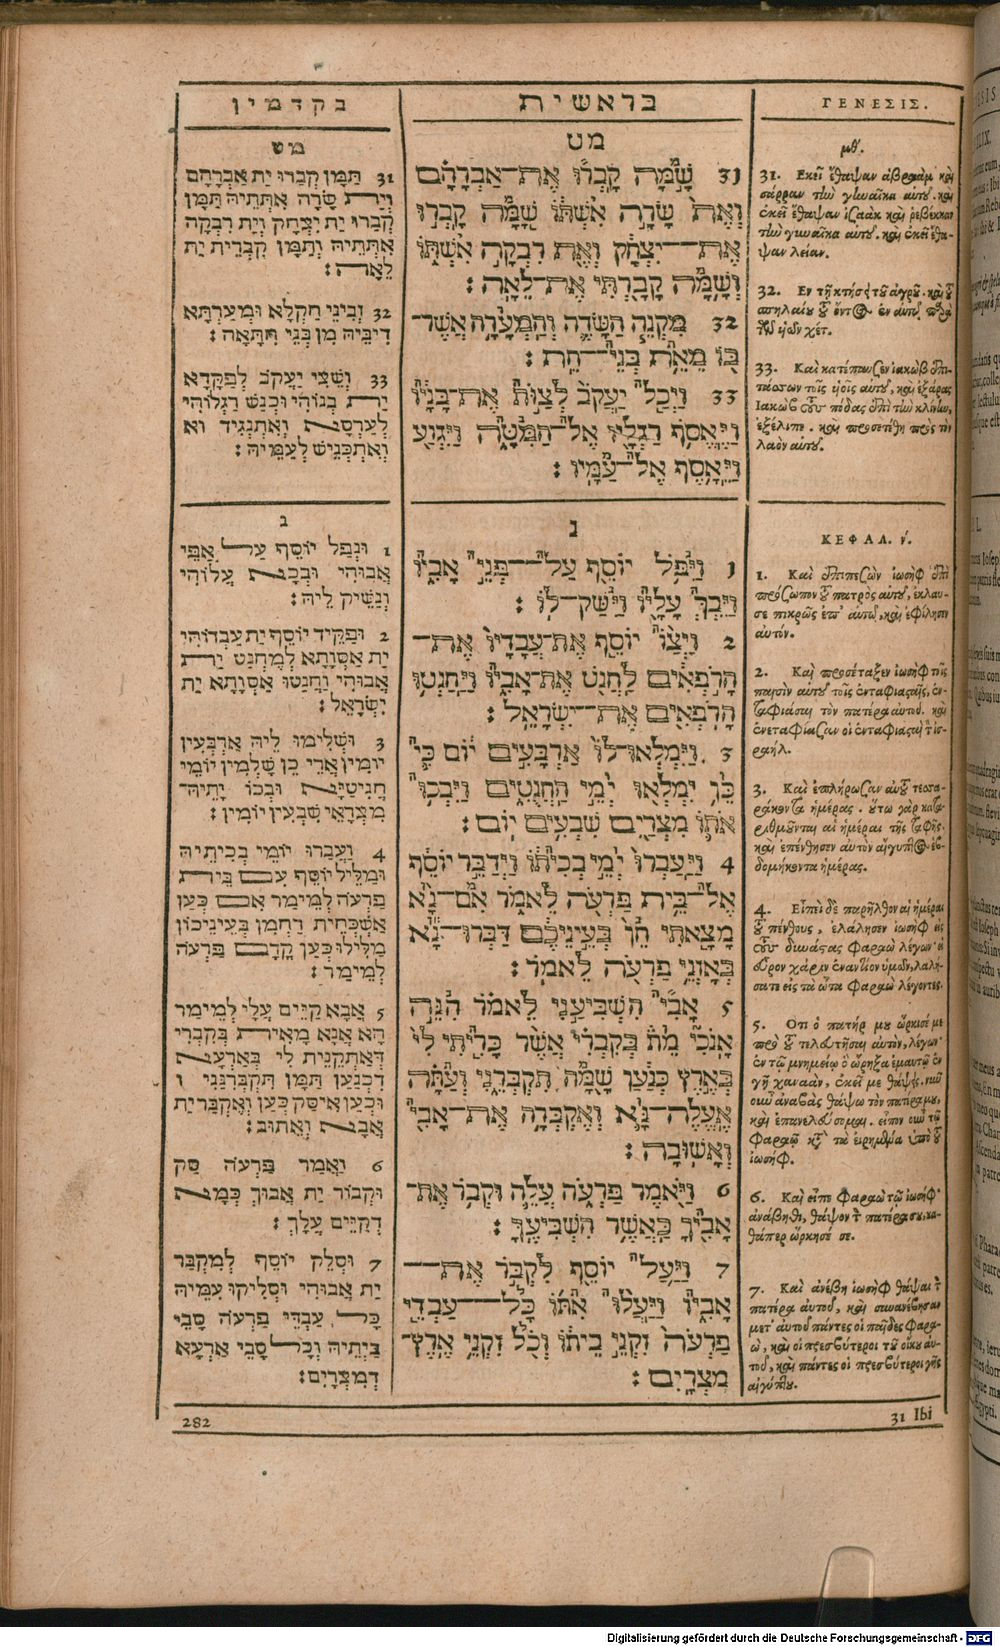 בקדמין
מט
31 תַּמָּן קְבַרוּ יַת אַבְרָהָם
וְיַת שָׂרָה אִתְּתֵיהּ תַּמָּן
קְבַרוּ יַת יִצְחָק וְיַת רִבְקָה
אִתְּתֵיהּ וְתַמָּן קְבָרִית יַת
לֵאָה׃
32 וּזְבִינֵי חַקְלָא וּמְעָרְתָּא
דִיבֵיהּ מִן בְּנֵי חִתָּאָה׃
33 וְשֵׁצִי יַעֲקֹב לְפַקָּדָא
יַת בְּנוֹהִי וּכְנַשׁ רַגְלוֹהִי
לְעַרְסָא וְאִתְנְגִיד וא
וְאִתְכְּנֵישׁ לְעַמֵּיהּ׃
1 וּנְפַל יוֹסֵף עַל אַפֵּי
אֲבוּהִי וּבְכָא עֲלוֹהִי
וְנַשֵּׁיק לֵיהּ׃
2 וּפַקֵּיד יוֹסֵף יַת עַבְדּוֹהִי
יַת אַסְוָתָא לְמֶחְנַט יַת
אֲבוּהִי וַחֲנַטוּ אַסְוָתָא יַת
יִשְׂרָאֵל׃
3 וּשְׁלִימוּ לֵיהּ אַרְבְּעִין
יוֹמִין אֲרֵי כֵן שָׁלְמִין יוֹמֵי
חֲנִיטַיָּא וּבְכוֹ יָתֵיהּ
מִצְרָאֵי שִׁבְעִין יוֹמִין׃
4 וַעֲבַרוּ יוֹמֵי בְכִיתֵיהּ
וּמַלֵּיל יוֹסֵף עִם בֵּית
פַּרְעֹה לְמֵימַר אִם כְּעַן
אַשְׁכָּחִית רַחֲמִן בְּעֵינֵיכוֹן
מַלִּילוּ כְעַן קֳדָם פַּרְעֹה
לְמֵימָר׃
5 אַבָּא קַיֵּים עֲלַי לְמֵימַר
הָא אֲנָא מָאִית בְּקִבְרִי
דְּאַתְקֵנִית לִי בְּאַרְעָא
דִכְנַעַן תַּמָּן תִּקְבְּרִנַּנִי
וּכְעַן אִיסַּק כְּעַן וְאֶקְבַּר יַת
אַבָּא וְאֵתוּב׃
6 וַאֲמַר פַּרְעֹה סַק
וּקְבוֹר יַת אֲבוּךְ כְּמָא
דְקַיֵּים עֲלָךְ׃
7 וּסְלֵק יוֹסֵף לְמִקְבַּר
יַת אֲבוּהִי וּסְלִיקוּ עִמֵּיהּ
כָּל עַבְדֵי פַרְעֹה סָבֵי
בֵיתֵיהּ וְכָל סָבֵי אַרְעָא
דְמִצְרָיִם׃
282
בראשית
מט
31 שָׁמָּה קָבְרוּ אֶת־אַבְרָהָם
וְאֵת שָׂרָה אִשְׁתּוֹ שָׁמָּה קָבְרוּ
אֶת־יִצְחָק וְאֵת רִבְקָה אִשְׁתּוֹ
וְשָׁמָּה קָבַרְתִּי אֶת־לֵאָה׃
32 מִקְנֵה הַשָּׂדֶה וְהַמְּעָרָה אֲשֶׁר־
בּוֹ מֵאֵת בְּנֵי־חֵת׃
33 וַיְכַל יַעֲקֹב לְצַוֹּת אֶת־בָּנָיו
וַיֶּאֱסֹף רַגְלָיו אֶל־הַמִּטָּה וַיִּגְוַע
וַיֵּאָסֶף אֶל־עַמָּיו׃
נ
1 וַיִּפֹּל יוֹסֵף עַל־פְּנֵי אָבִיו
וַיֵּבְךְּ עָלָיו וַיִּשַּׁק־לוֹ׃
2 וַיְצַו יוֹסֵף אֶת־עֲבָדָיו אֶת־
הָרֹפְאִים לַחֲנֹט אֶת־אָבִיו וַיַּחַנְטוּ
הָרֹפְאִים אֶת־יִשְׂרָאֵל׃
3 וַיִּמְלְאוּ־לוֹ אַרְבָּעִים יוֹם כִּי
כֵּן יִמְלְאוּ יְמֵי הַחֲנֻטִים וַיִּבְכּוּ
אֹתוֹ מִצְרַיִם שִׁבְעִים יוֹם׃
4 וַיַּעַבְרוּ יְמֵי בְכִיתוֹ וַיְדַבֵּר יוֹסֵף
אֶל־בֵּית פַּרְעֹה לֵאמֹר אִם־נָא
מָצָאתִי חֵן בְּעֵינֵיכֶם דַּבְּרוּ־נָא
בְּאָזְנֵי פַרְעֹה לֵאמֹר׃
5 אָבִי הִשְׁבִּיעַנִי לֵאמֹר הִנֵּה
אָנֹכִי מֵת בְּקִבְרִי אֲשֶׁר כָּרִיתִי לִי
בְּאֶרֶץ כְּנַעַן שָׁמָּה תִּקְבְּרֵנִי וְעַתָּה
אֶעֱלֶה־נָּא וְאֶקְבְּרָה אֶת־אָבִי
וְאָשׁוּבָה׃
6 וַיֹּאמֶר פַּרְעֹה עֲלֵה וּקְבֹר אֶת־
אָבִיךָ כַּאֲשֶׁר הִשְׁבִּיעֶךָ׃
7 וַיַּעַל יוֹסֵף לִקְבֹּר אֶת־
אָבִיו וַיַּעֲלוּ אִתּוֹ כָּל־עַבְדֵי
פַרְעֹה זִקְנֵי בֵיתוֹ וְכֹל זִקְנֵי אֶרֶץ־
מִצְרָיִם׃
ΓΕΝΕΣΙΣ.
μθʹ.
31. Ἐκεῖ ἔθαψαν ἀβραὰμ καὶ
σάρραν τὴν γυναῖκα αὐτοῦ. καὶ
ἐκεῖ ἔθαψαν ἰσαὰκ καὶ ῥεβέκκαν
τὴν γυναῖκα αὐτοῦ. καὶ ἐκεῖ ἔθα-
ψαν λείαν.
32. Ἐν τῇ κτήσει τοῦ ἀγροῦ. καὶ τοῦ
σπηλαίου τοῦ ὄντος ἐν αὐτῷ παρὰ
τῶν υἱῶν χέτ.
33. Καὶ κατέπαυσεν ἰακὼβ ἐπι-
τάσσων τοῖς υἱοῖς αὐτοῦ, καὶ ἐξάρας
Ἰακὼβ τοὺς πόδας ἐπὶ τὴν κλίνην,
ἐξέλιπε. καὶ προσετέθη πρὸς τὸν
λαὸν αὐτοῦ.
ΚΕΦΑΛ. νʹ.
1. Καὶ ἐπιπεσὼν ἰωσὴφ ἐπὶ
πρόσωπον τοῦ πατρὸς αὐτοῦ, ἔκλαυ-
σε πικρῶς ἐπ' αὐτῷ, καὶ ἐφίλησεν
αὐτόν.
2. Καὶ προσέταξεν ἰωσὴφ τοῖς
παισὶν αὐτοῦ τοῖς ἐνταφιασταῖς, ἐν-
ταφιάσαι τὸν πατέρα αὐτοῦ. καὶ
ἐνεταφίασαν οἱ ἐνταφιασταὶ τὸν ἰσ-
ραήλ.
3. Καὶ ἐπλήρωσαν αὐτοῦ τεσσα-
ράκοντα ἡμέρας. οὕτω γὰρ κατα-
ριθμοῦνται αἱ ἡμέραι τῆς ταφῆς.
καὶ ἐπένθησεν αὐτὸν αἴγυπτος ἑβ-
δομήκοντα ἡμέρας.
4. Ἐπεὶ δὲ παρῆλθον αἱ ἡμέραι
τοῦ πένθους, ἐλάλησεν ἰωσὴφ εἰς
τοὺς δυνάστας Φαραὼ λέγων· εἰ
εὗρον χάριν ἐναντίον ὑμῶν, λαλή-
σατε εἰς τὰ ὦτα Φαραὼ λέγοντες.
5. Ὅτι ὁ πατήρ μου ὥρκισέ με
πρὸ τοῦ τελευτῆσαι αὐτὸν, λέγων·
ἐν τῷ μνημείῳ ὃ ὤρυξα ἐμαυτῷ ἐν
γῇ χαναὰν, ἐκεῖ με θάψεις. νῦν
οὖν ἀναβὰς θάψω τὸν πατέρα μου,
καὶ ἐπανελεύσομαι. εἶπον οὖν τῷ
Φαραῷ κατὰ τὰ εἰρημένα ὑπὸ τοῦ
ἰωσήφ.
6. Καὶ εἶπε Φαραὼ τῷ ἰωσήφ·
ἀνάβηθι, θάψον τὸν πατέρα σου, κα-
θάπερ ὥρκισέ σε.
7. Καὶ ἀνέβη ἰωσὴφ θάψαι τὸν
πατέρα αὐτοῦ, καὶ συνανέβησαν
μετ' αὐτοῦ πάντες οἱ παῖδες Φαρα-
ώ, καὶ οἱ πρεσβύτεροι τοῦ οἴκου αὐ-
τοῦ, καὶ πάντες οἱ πρεσβύτεροι γῆς
αἰγύπτου.
31 Ibi
Digitalisierung gefördert durch die Deutsche Forschungsgemeinschaft - DFG